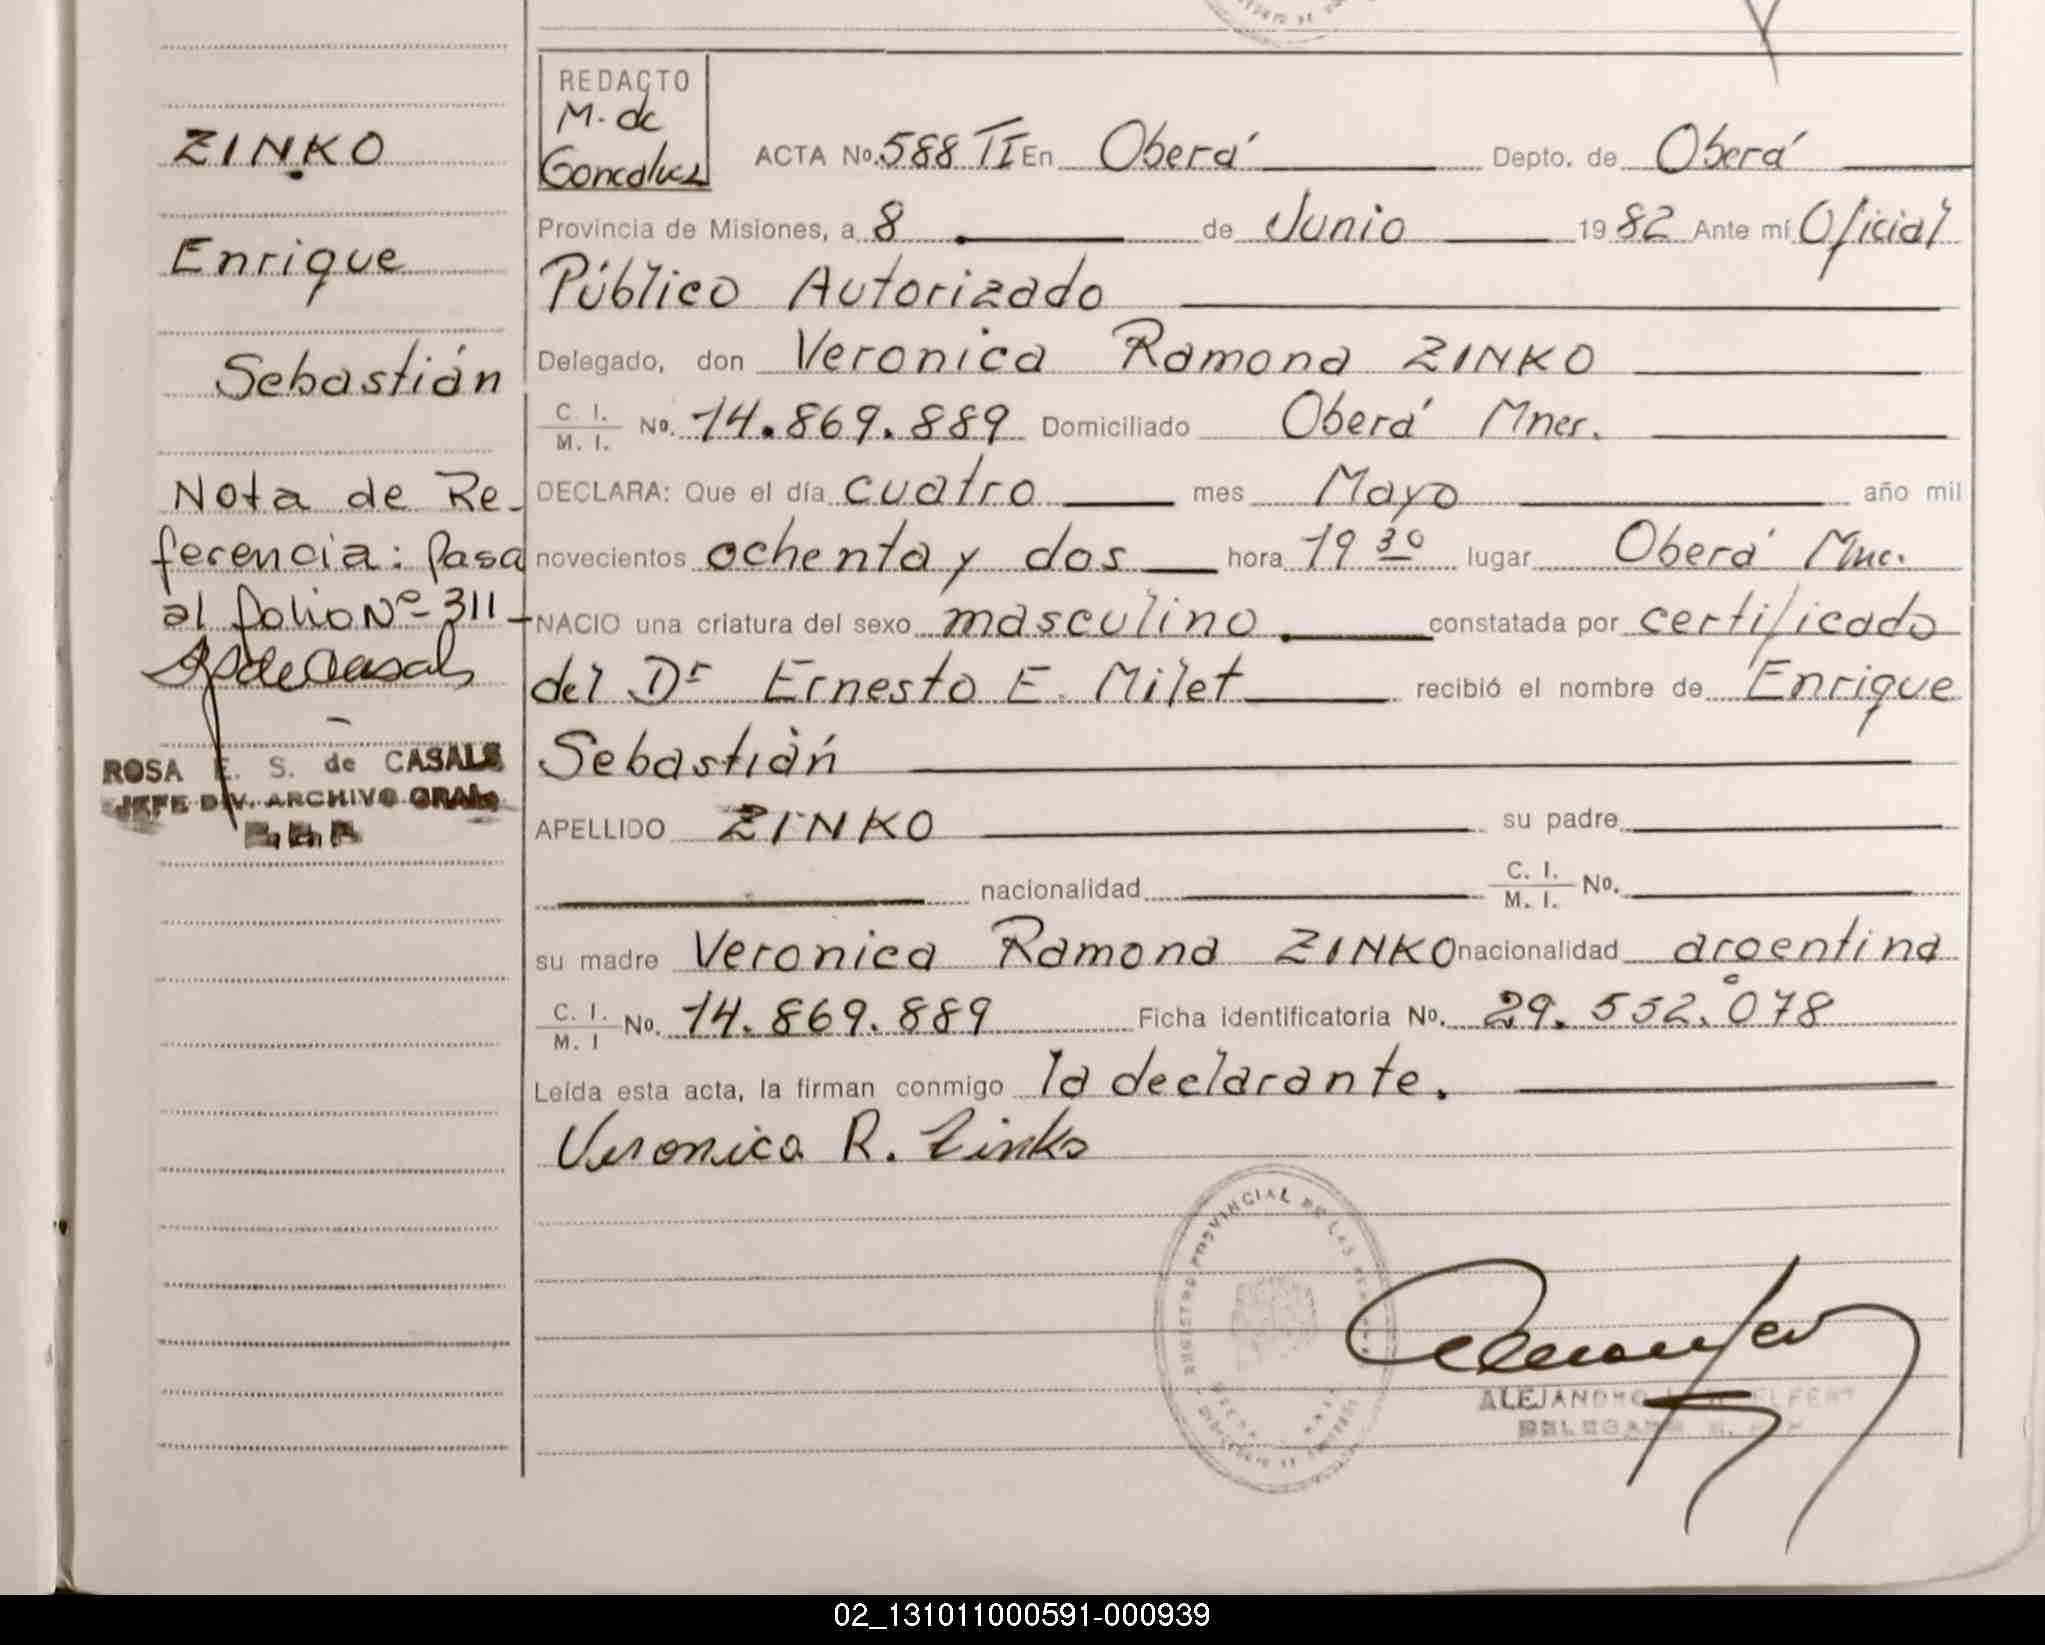 ZINKO
Enrique
Sebastián
Nota de Re-
ferencia: Pasa
al folio Nº 311-
ROSA E. S. de CASALS
JEFE DIV. ARCHIVO GRAL.
REDACTO
M. de
Goncalvez
ACTA No. 588 TI En Oberá Depto. de Oberá
Provincia de Misiones, a 8 de Junio 1982 Ante mí Oficial
Público Autorizado
Delegado, don Veronica Ramona ZINKO
C. I.
M. I. No. 14.869.889 Domiciliado Oberá Mnes.
DECLARA: Que el día cuatro mes Mayo año mil
novecientos ochenta y dos hora 19 30 lugar Oberá Mnes.
NACIO una criatura del sexo masculino constatada por certificado
del Dr Ernesto E. Milet recibió el nombre de Enrique
Sebastián
APELLIDO ZINKO su padre
nacionalidad C. I.
M. I. No.
su madre Veronica Ramona ZINKO nacionalidad argentina
C. I.
M. I No. 14.869.889 Ficha identificatoria No. 29.552.078
Leída esta acta, la firman conmigo la declarante.
Veronica R. Zinko
REGISTRO PROVINCIAL DE LAS
ALEJANDRO
DELEGADO
02_131011000591-000939